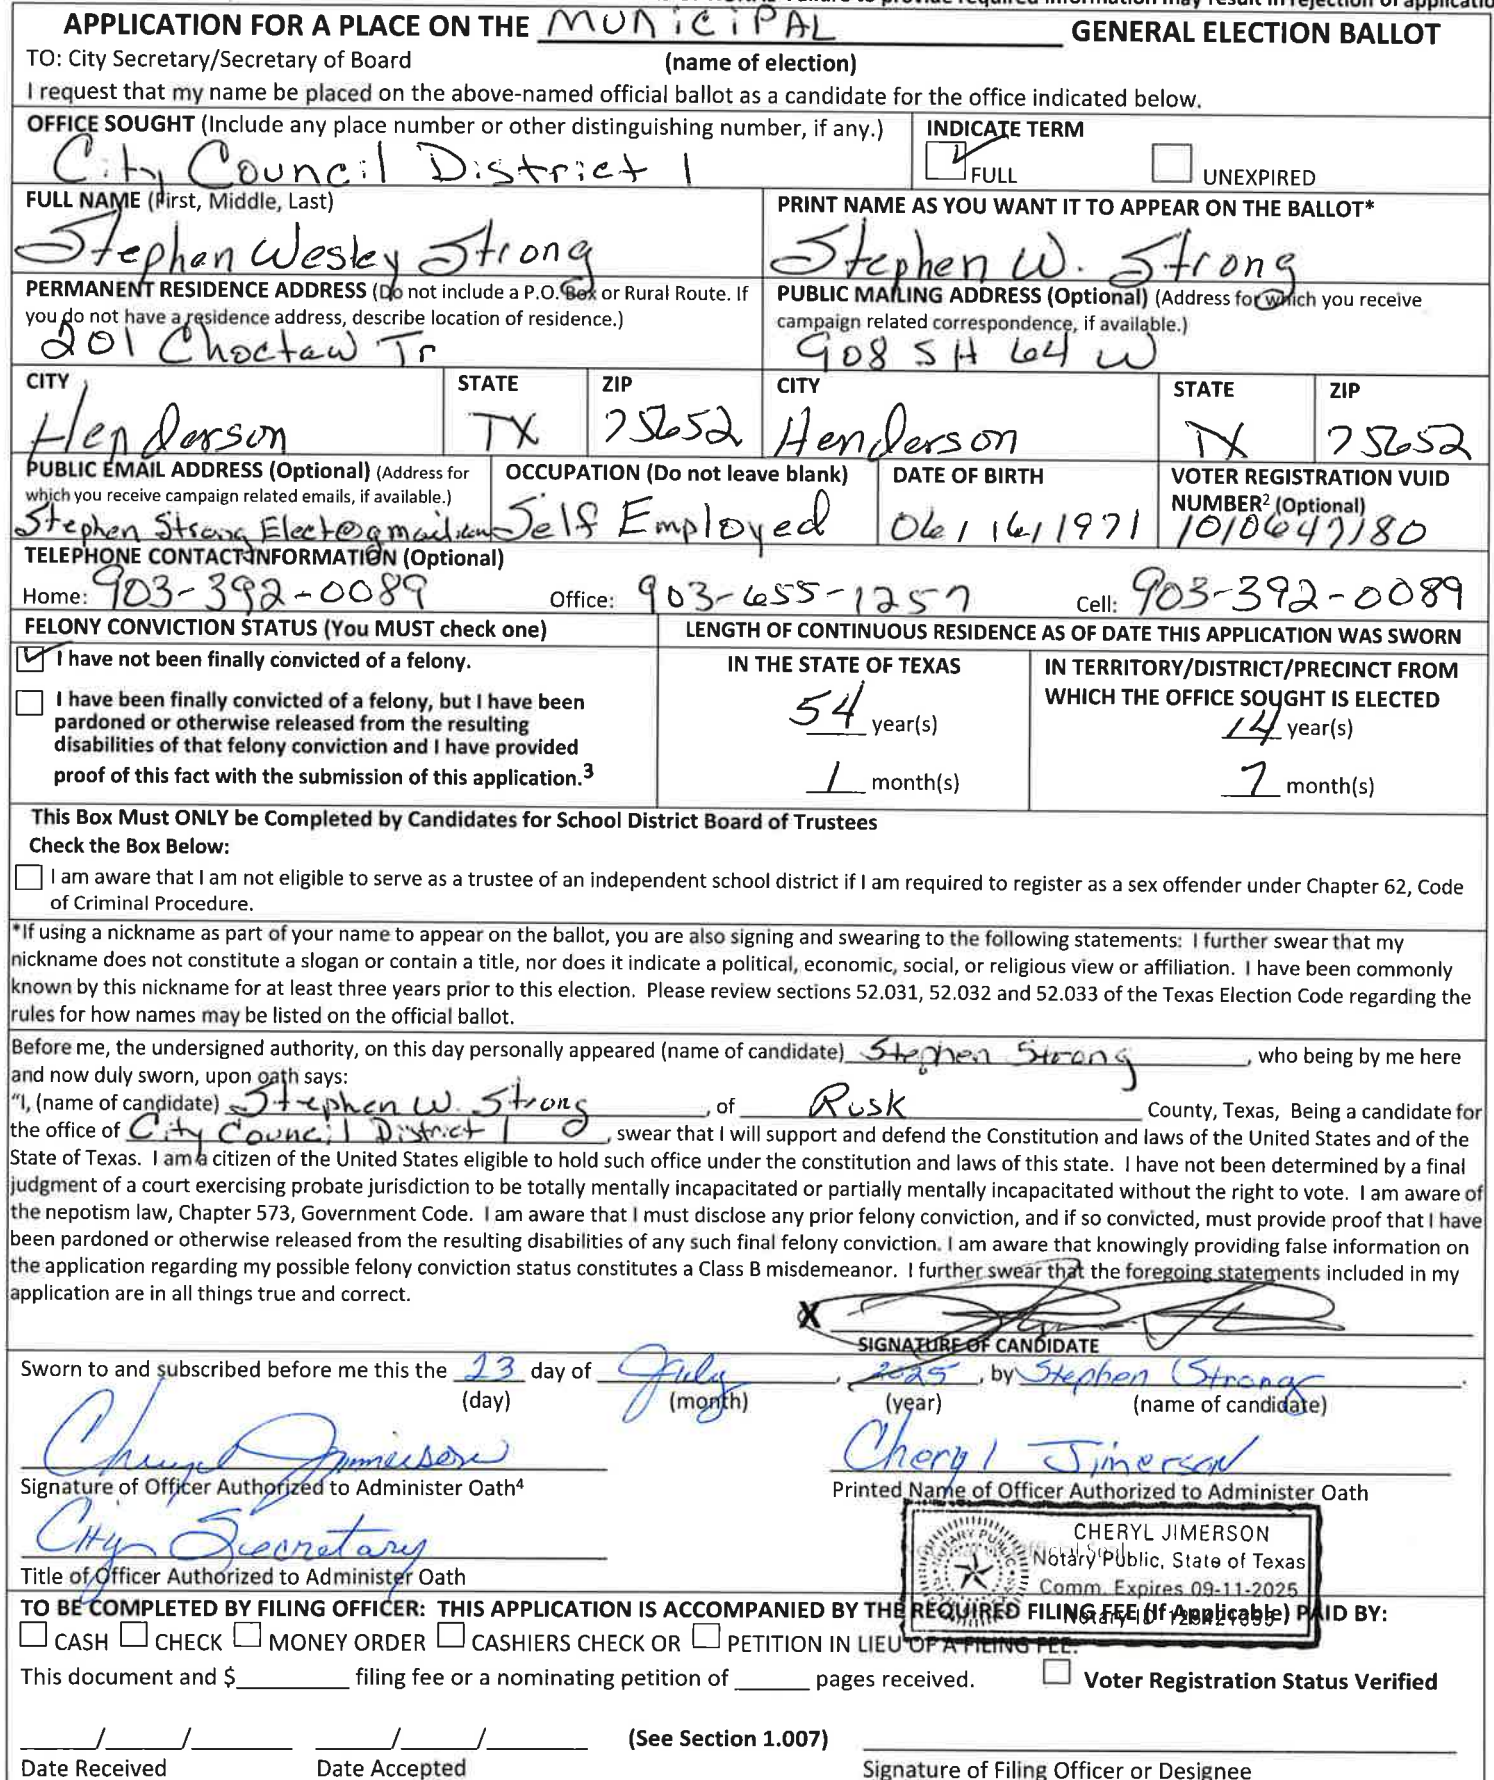 APPLICATION FOR A PLACE ON THE MUNICIPAL GENERAL ELECTION BALLOT
TO: City Secretary/Secretary of Board (name of election)
I request that my name be placed on the above-named official ballot as a candidate for the office indicated below.
OFFICE SOUGHT (Include any place number or other distinguishing number, if any.) INDICATE TERM
City Council District 1 FULL UNEXPIRED
FULL NAME (First, Middle, Last) PRINT NAME AS YOU WANT IT TO APPEAR ON THE BALLOT*
Stephen Wesley Strong Stephen W. Strong
PERMANENT RESIDENCE ADDRESS (Do not include a P.O. Box or Rural Route. If you do not have a residence address, describe location of residence.)
201 Choctaw Tr
PUBLIC MAILING ADDRESS (Optional) (Address for which you receive campaign related correspondence, if available.)
908 SH 64 W
CITY STATE ZIP CITY STATE ZIP
Henderson TX 75652 Henderson TX 75652
PUBLIC EMAIL ADDRESS (Optional) (Address for which you receive campaign related emails, if available.)
StephenStrongElect@gmail.com
OCCUPATION (Do not leave blank)
Self Employed
DATE OF BIRTH
06/16/1971
VOTER REGISTRATION VUID NUMBER² (Optional)
1010647180
TELEPHONE CONTACT INFORMATION (Optional)
Home: 903-392-0089 Office: 903-655-1257 Cell: 903-392-0089
FELONY CONVICTION STATUS (You MUST check one) LENGTH OF CONTINUOUS RESIDENCE AS OF DATE THIS APPLICATION WAS SWORN
I have not been finally convicted of a felony.
I have been finally convicted of a felony, but I have been
pardoned or otherwise released from the resulting
disabilities of that felony conviction and I have provided
proof of this fact with the submission of this application.³
IN THE STATE OF TEXAS
54 year(s)
1 month(s)
IN TERRITORY/DISTRICT/PRECINCT FROM
WHICH THE OFFICE SOUGHT IS ELECTED
14 year(s)
7 month(s)
This Box Must ONLY be Completed by Candidates for School District Board of Trustees
Check the Box Below:
I am aware that I am not eligible to serve as a trustee of an independent school district if I am required to register as a sex offender under Chapter 62, Code
of Criminal Procedure.
*If using a nickname as part of your name to appear on the ballot, you are also signing and swearing to the following statements: I further swear that my
nickname does not constitute a slogan or contain a title, nor does it indicate a political, economic, social, or religious view or affiliation. I have been commonly
known by this nickname for at least three years prior to this election. Please review sections 52.031, 52.032 and 52.033 of the Texas Election Code regarding the
rules for how names may be listed on the official ballot.
Before me, the undersigned authority, on this day personally appeared (name of candidate) Stephen Strong, who being by me here
and now duly sworn, upon oath says:
"I, (name of candidate) Stephen W. Strong, of Rusk County, Texas, Being a candidate for
the office of City Council District 1, swear that I will support and defend the Constitution and laws of the United States and of the
State of Texas. I am a citizen of the United States eligible to hold such office under the constitution and laws of this state. I have not been determined by a final
judgment of a court exercising probate jurisdiction to be totally mentally incapacitated or partially mentally incapacitated without the right to vote. I am aware of
the nepotism law, Chapter 573, Government Code. I am aware that I must disclose any prior felony conviction, and if so convicted, must provide proof that I have
been pardoned or otherwise released from the resulting disabilities of any such final felony conviction. I am aware that knowingly providing false information on
the application regarding my possible felony conviction status constitutes a Class B misdemeanor. I further swear that the foregoing statements included in my
application are in all things true and correct.
X
SIGNATURE OF CANDIDATE
Sworn to and subscribed before me this the 23 day of July, 2025, by Stephen Strong.
(day) (month) (year) (name of candidate)
Cheryl Jimerson Cheryl Jimerson
Signature of Officer Authorized to Administer Oath⁴ Printed Name of Officer Authorized to Administer Oath
City Secretary
Title of Officer Authorized to Administer Oath
CHERYL JIMERSON
Notary Public, State of Texas
Comm. Expires 09-11-2025
Notary ID
TO BE COMPLETED BY FILING OFFICER: THIS APPLICATION IS ACCOMPANIED BY THE REQUIRED FILING FEE (If Applicable) PAID BY:
CASH CHECK MONEY ORDER CASHIERS CHECK OR PETITION IN LIEU OF A FILING FEE.
This document and $ filing fee or a nominating petition of pages received. Voter Registration Status Verified
/ / / / (See Section 1.007)
Date Received Date Accepted Signature of Filing Officer or Designee